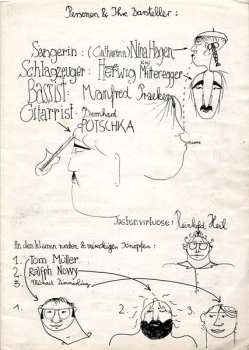 Personen & Ihre Darsteller:
Sängerin: (Catharina) Nina Hagen
Schlagzeuger: Herwig Mitteregger
Bassist: Manfred Praeker
Gitarrist: Bernhard
POTSCHKA
Tastenvirtuose: Reinhold Heil
An den kleinen runden & viereckigen Knöpfen:
1. Tom Müller
2. Ralph Nowy
3. Michael Zimmerling
1.
2.
3.